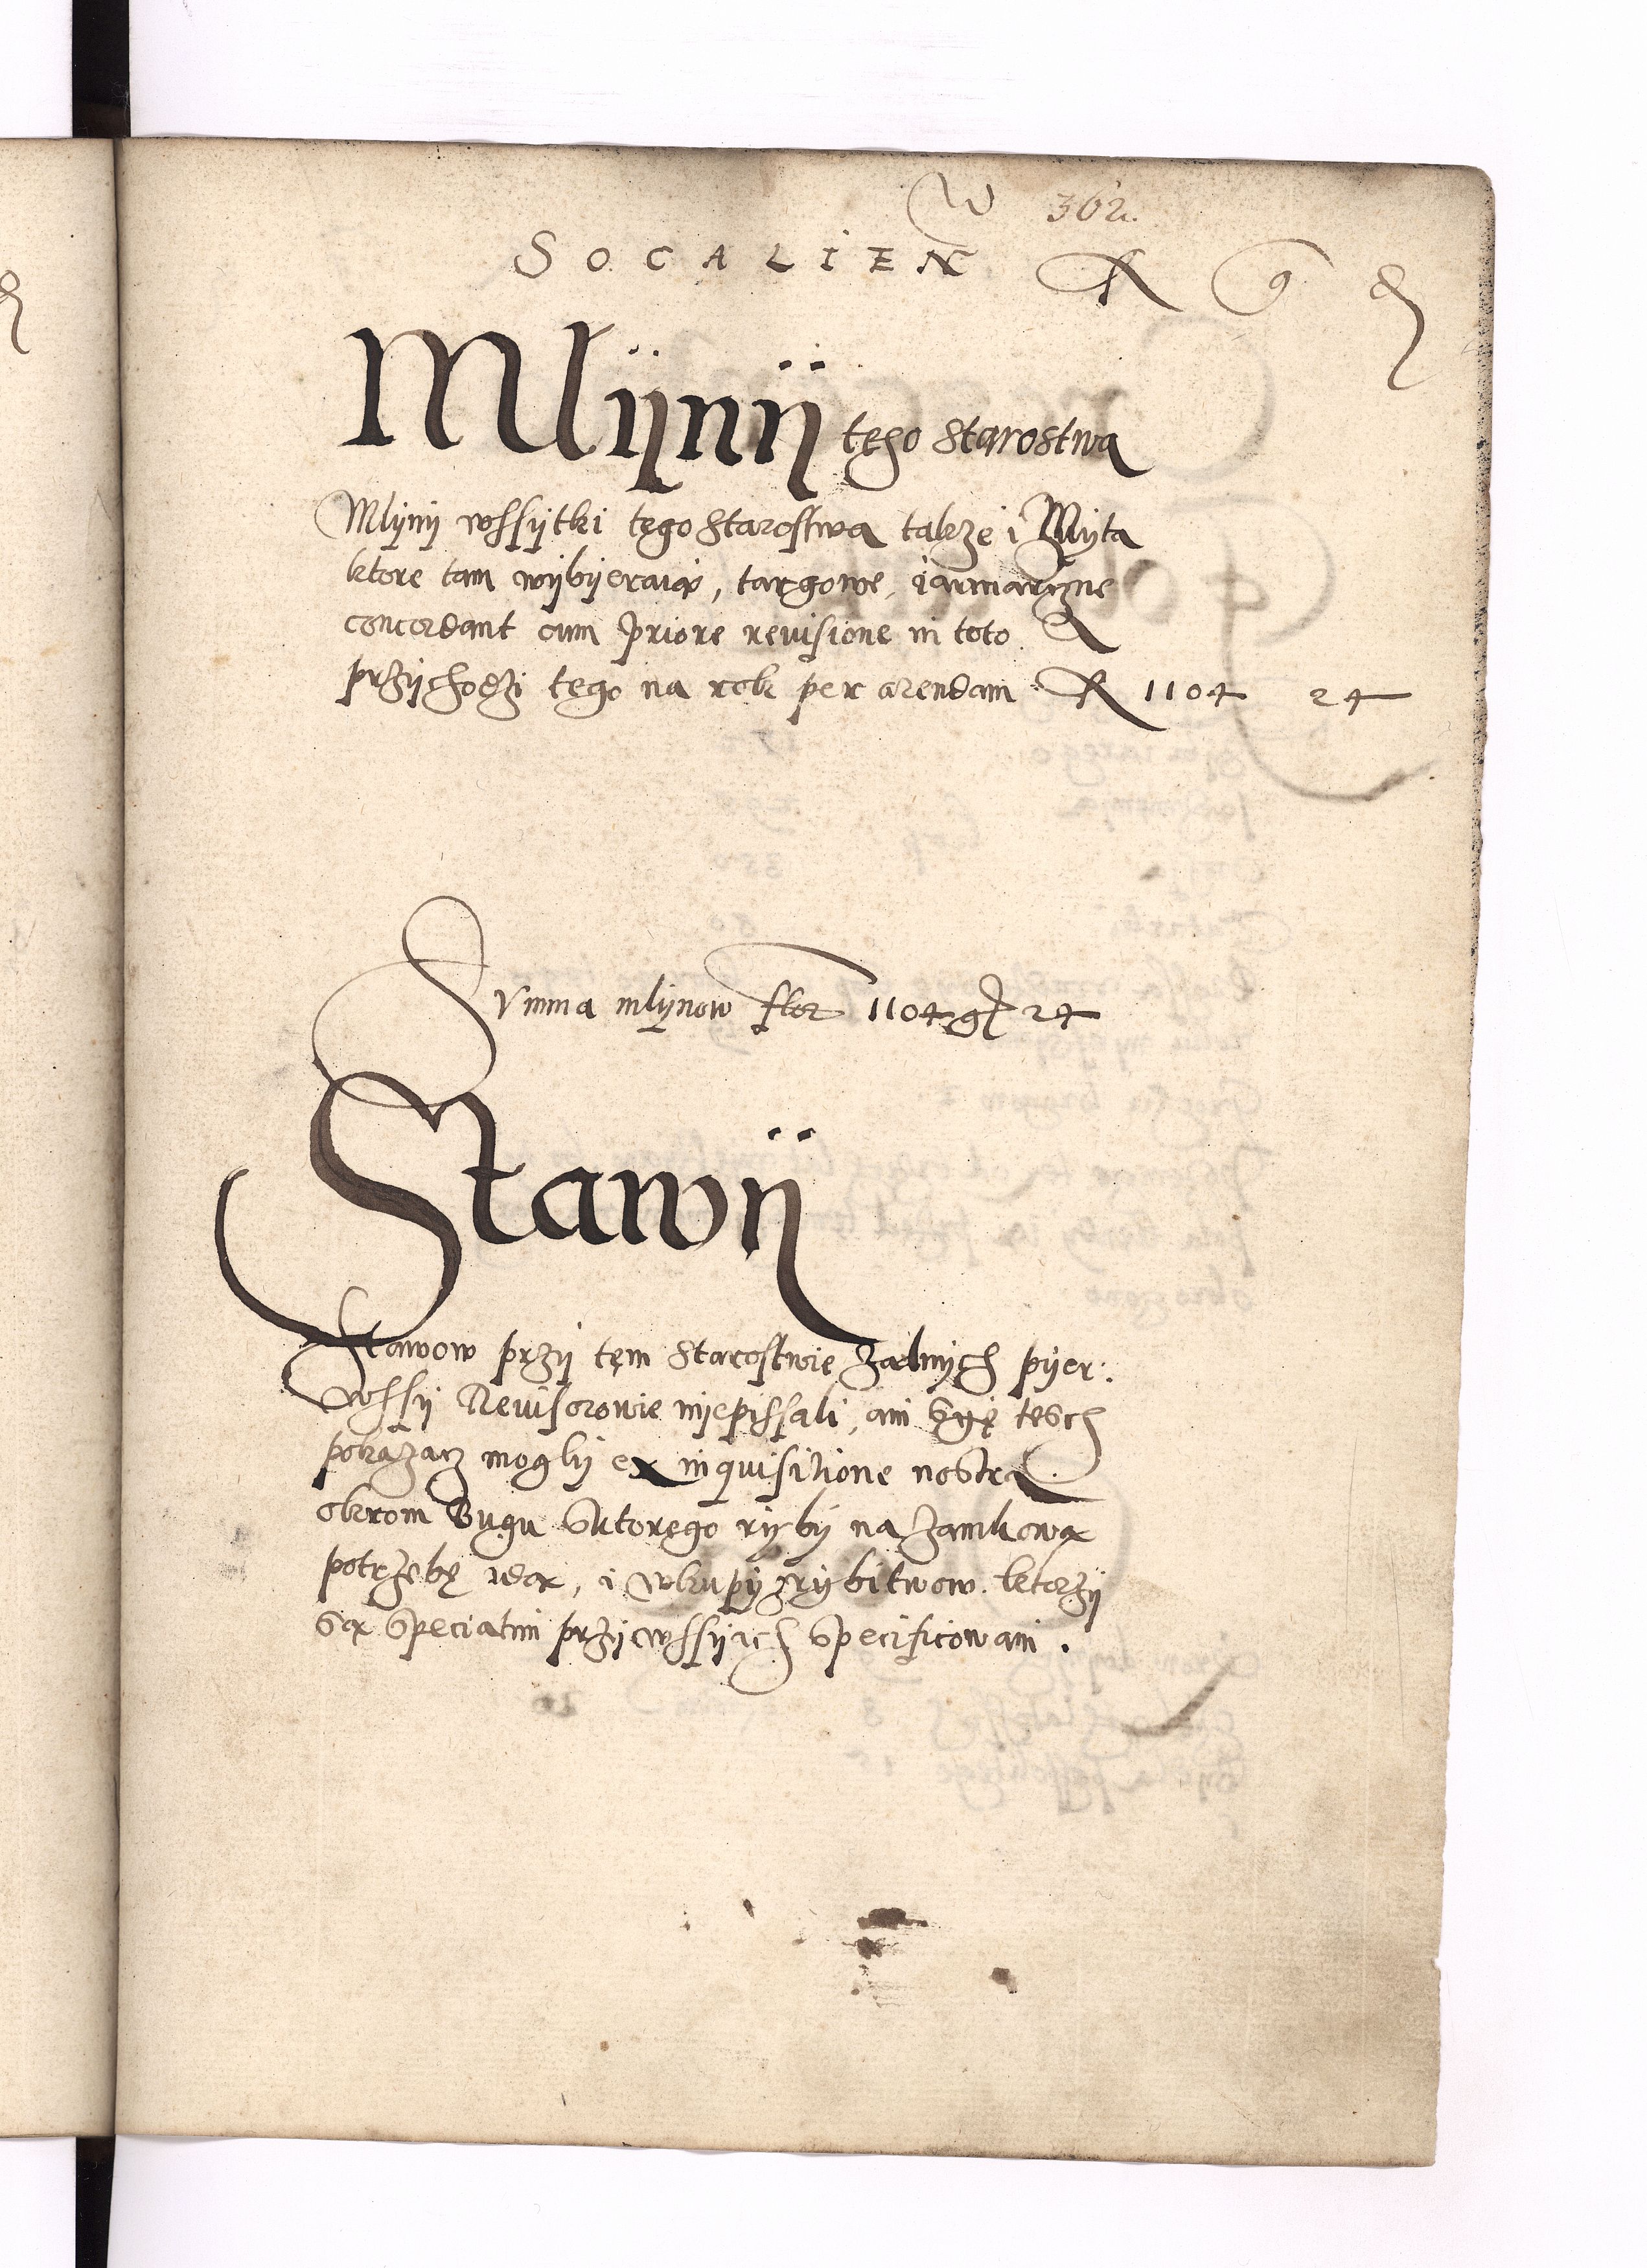 W 362.
SOCALIEN fl g d
Mlÿnÿ tego starostwa
Mlÿnÿ wssÿtki tego starostwa takze i Mÿta
ktore tam wÿbÿeraią, targowe, iarmarczne
concordant cum priore reuisione in toto
przÿchodzi tego na rok per arendam fl 1104 24
Summa mlÿnow flor 1104 gr 24
Stawÿ
Stawow przÿ tęm starostwie zadnÿch pÿer:
wssÿ Reuisorowie niepissali, ani sÿę tesch
pokazacz moglÿ ex inquisitione nostra
okrom Bugu sktorego rÿbÿ na zamkową
potrzebę idą, i wkupÿ zrÿbitwow. ktorzÿ
są speciatim przÿ wssÿach specificowani.